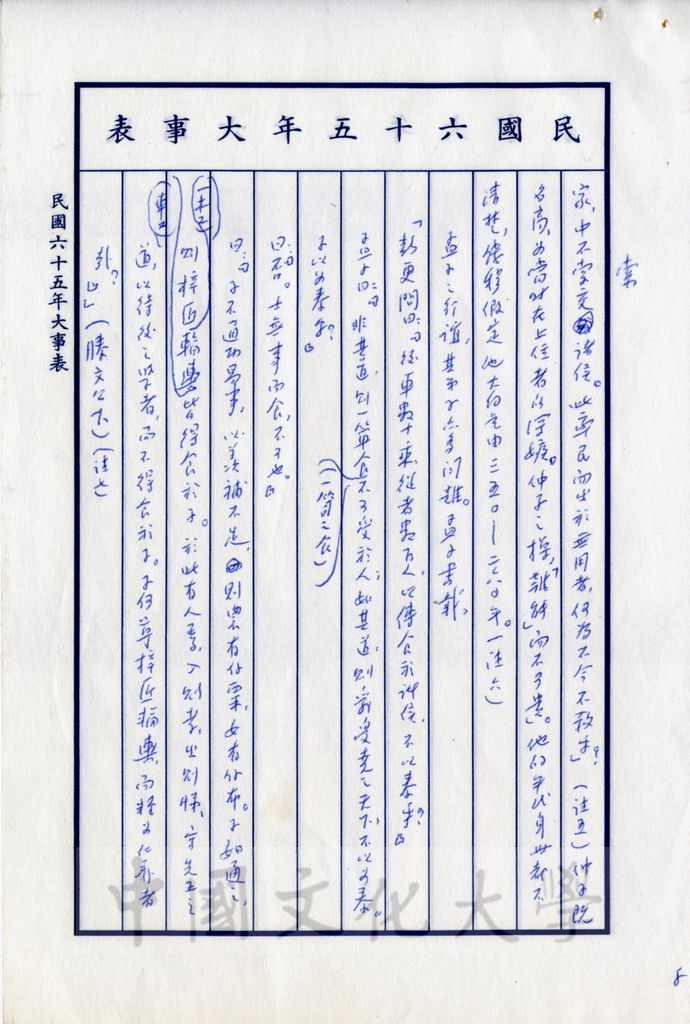 民國六十五年大事表
索
家，中不索交諸侯。此率民而出於無用者，何為不今不殺乎？」（註五）仲子既
名高，又當時在上位者所深嫉。仲子之操，「難能」而不可貴」。他的年代身世都不
清楚，錢穆假定他大約是由三五〇—二六〇年。（註六）
孟子之行誼，其弟子亦多問難。孟子書載，
「彭更問曰：曰後車數十乘從者數百人，以傳食於諸侯，不以泰乎？」
孟子曰：曰非其道，則一簞食不可受於人；如其道，則舜受堯之天下，不以為泰。
子以為泰乎？」
（一簞之食）
曰：曰否。士無事而食，不可也。」
曰：曰子不通功易事，以羨補不足，則農有餘粟，女有餘布。子如通之，
則梓匠輪輿皆得食於子。於此有人焉，入則孝，出則悌，守先王之
道，以待後之學者，而不得食於子。子何尊梓匠輪輿，而輕為仁義者
哉？」」（滕文公下）（註七）
民國六十五年大事表
中國文化大學
8